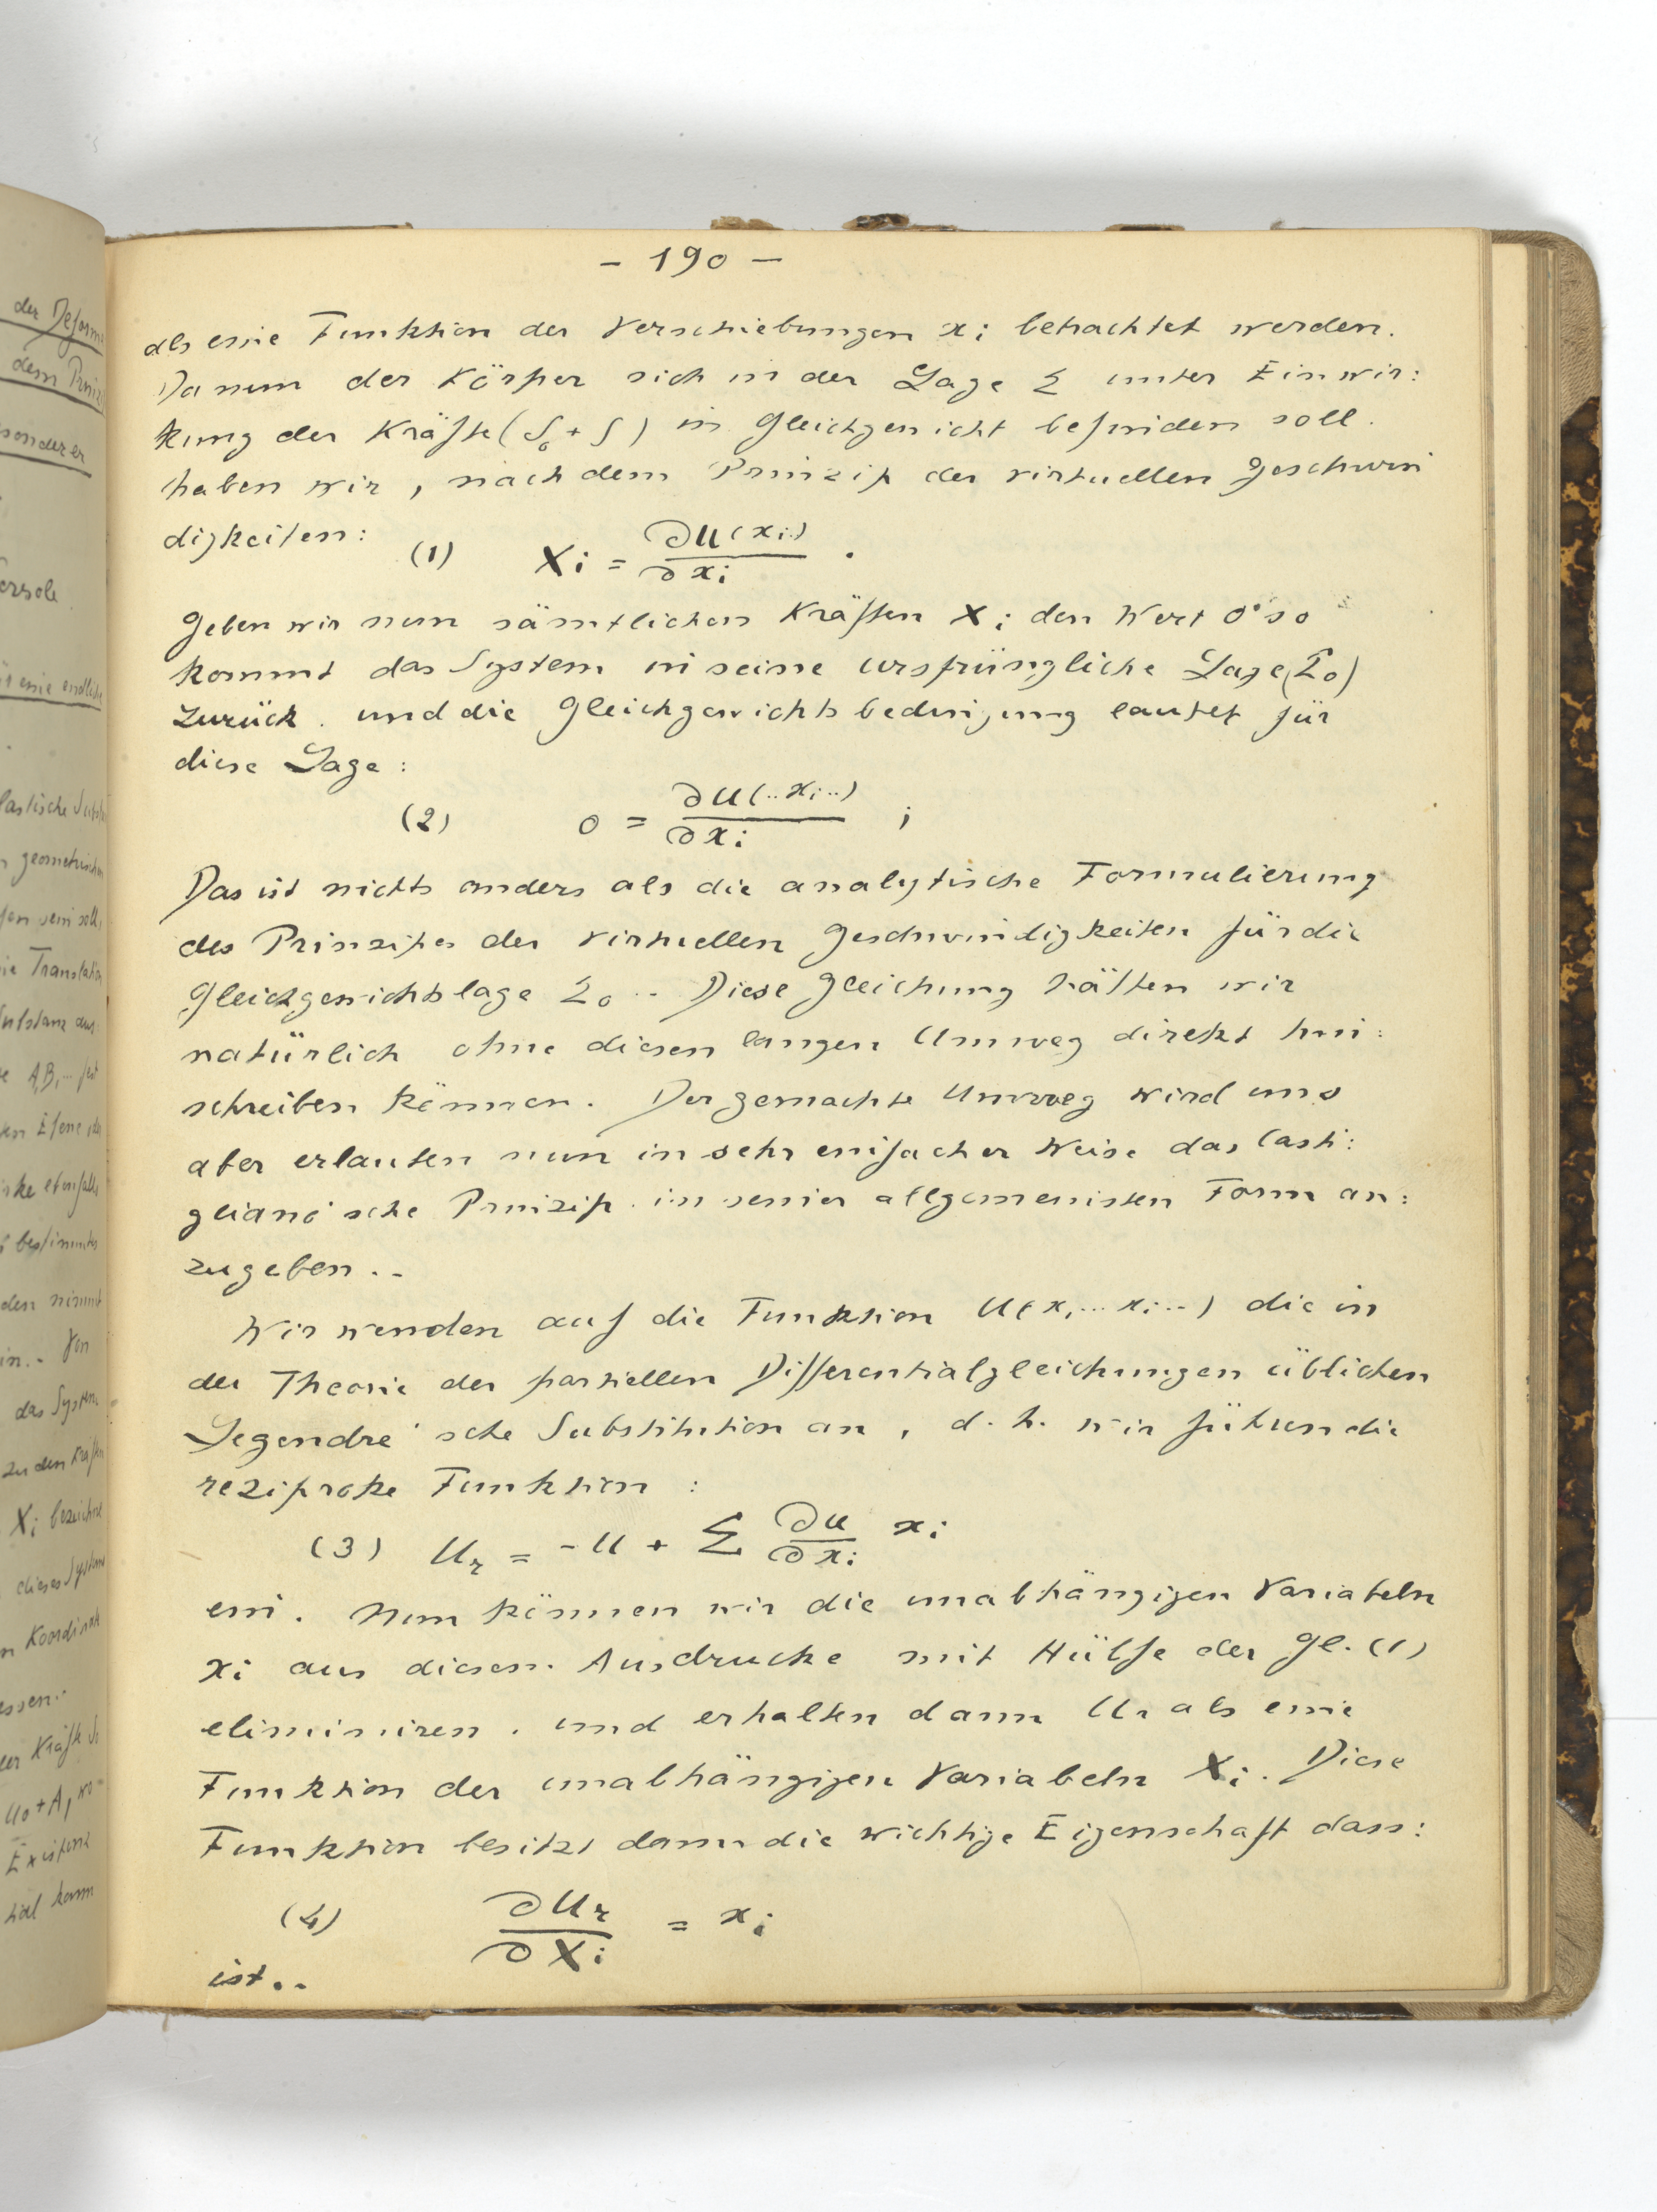 - 190 -
als eine Funktion der Verschiebungen xi betrachtet werden.
Da nun der Körper sich in der Lage Σ unter Einwir:
kung der Kräfte (S₀ + S) in Gleichgewicht befinden soll.
haben wir, nach dem Prinzip der virtuellen Geschwin
digkeiten: (1) Xi = ∂U(xi) / ∂xi .
Geben wir nun sämtlichen Kräften Xi den Wert 0 so
kommt das System in seine ursprüngliche Lage (Σ₀)
zurück. und die Gleichgewichtsbedingung lautet für
diese Lage:
(2) 0 = ∂U(..xi..) / ∂xi ;
Das ist nichts anders als die analytische Formulierung
des Prinzipes der virtuellen Geschwindigkeiten für die
Gleichgewichtslage Σ₀.. Diese Gleichung hätten wir
natürlich ohne diesen langen Umweg direkt hin:
schreiben können. Der gemachte Umweg wird uns
aber erlauben nun in sehr einfacher Weise das Casti:
gliano'sche Prinzip in seiner allgemeinsten Form an:
zugeben..
Wir wenden auf die Funktion U(x,... xi...) die in
der Theorie der partiellen Differentialgleichungen üblichen
Legendre'sche Substitution an, d.h. wir führen die
reziproke Funktion :
(3) Ur = -U + Σ ∂U/∂xi xi
ein. Nun können wir die unabhängigen Variabeln
xi aus diesem Ausdrucke mit Hülfe der Gl. (1)
eliminiren. und erhalten dann Ur als eine
Funktion der unabhängigen Variabeln Xi. Diese
Funktion besitzt dann die wichtige Eigenschaft dass:
(4) ∂Ur / ∂Xi = xi
ist..
der Deform
dem Prinz
sonderer
eine endliche
lastische Subst
geometrischen
sein soll,
Translation
Substanz aus:
A,B,...
Ebene
ebenfalls
bestimmtes
den nimmt
in.. Von
das System
zu den Kräften
Xi bezeichne
dieses System
Koordinat
essen..
der Kräfte S
U₀+A, wo
Existenz
tial kann